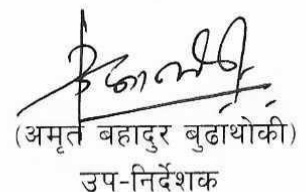 (अमृत बहादुर बुढाथोकी)
उप-निर्देशक